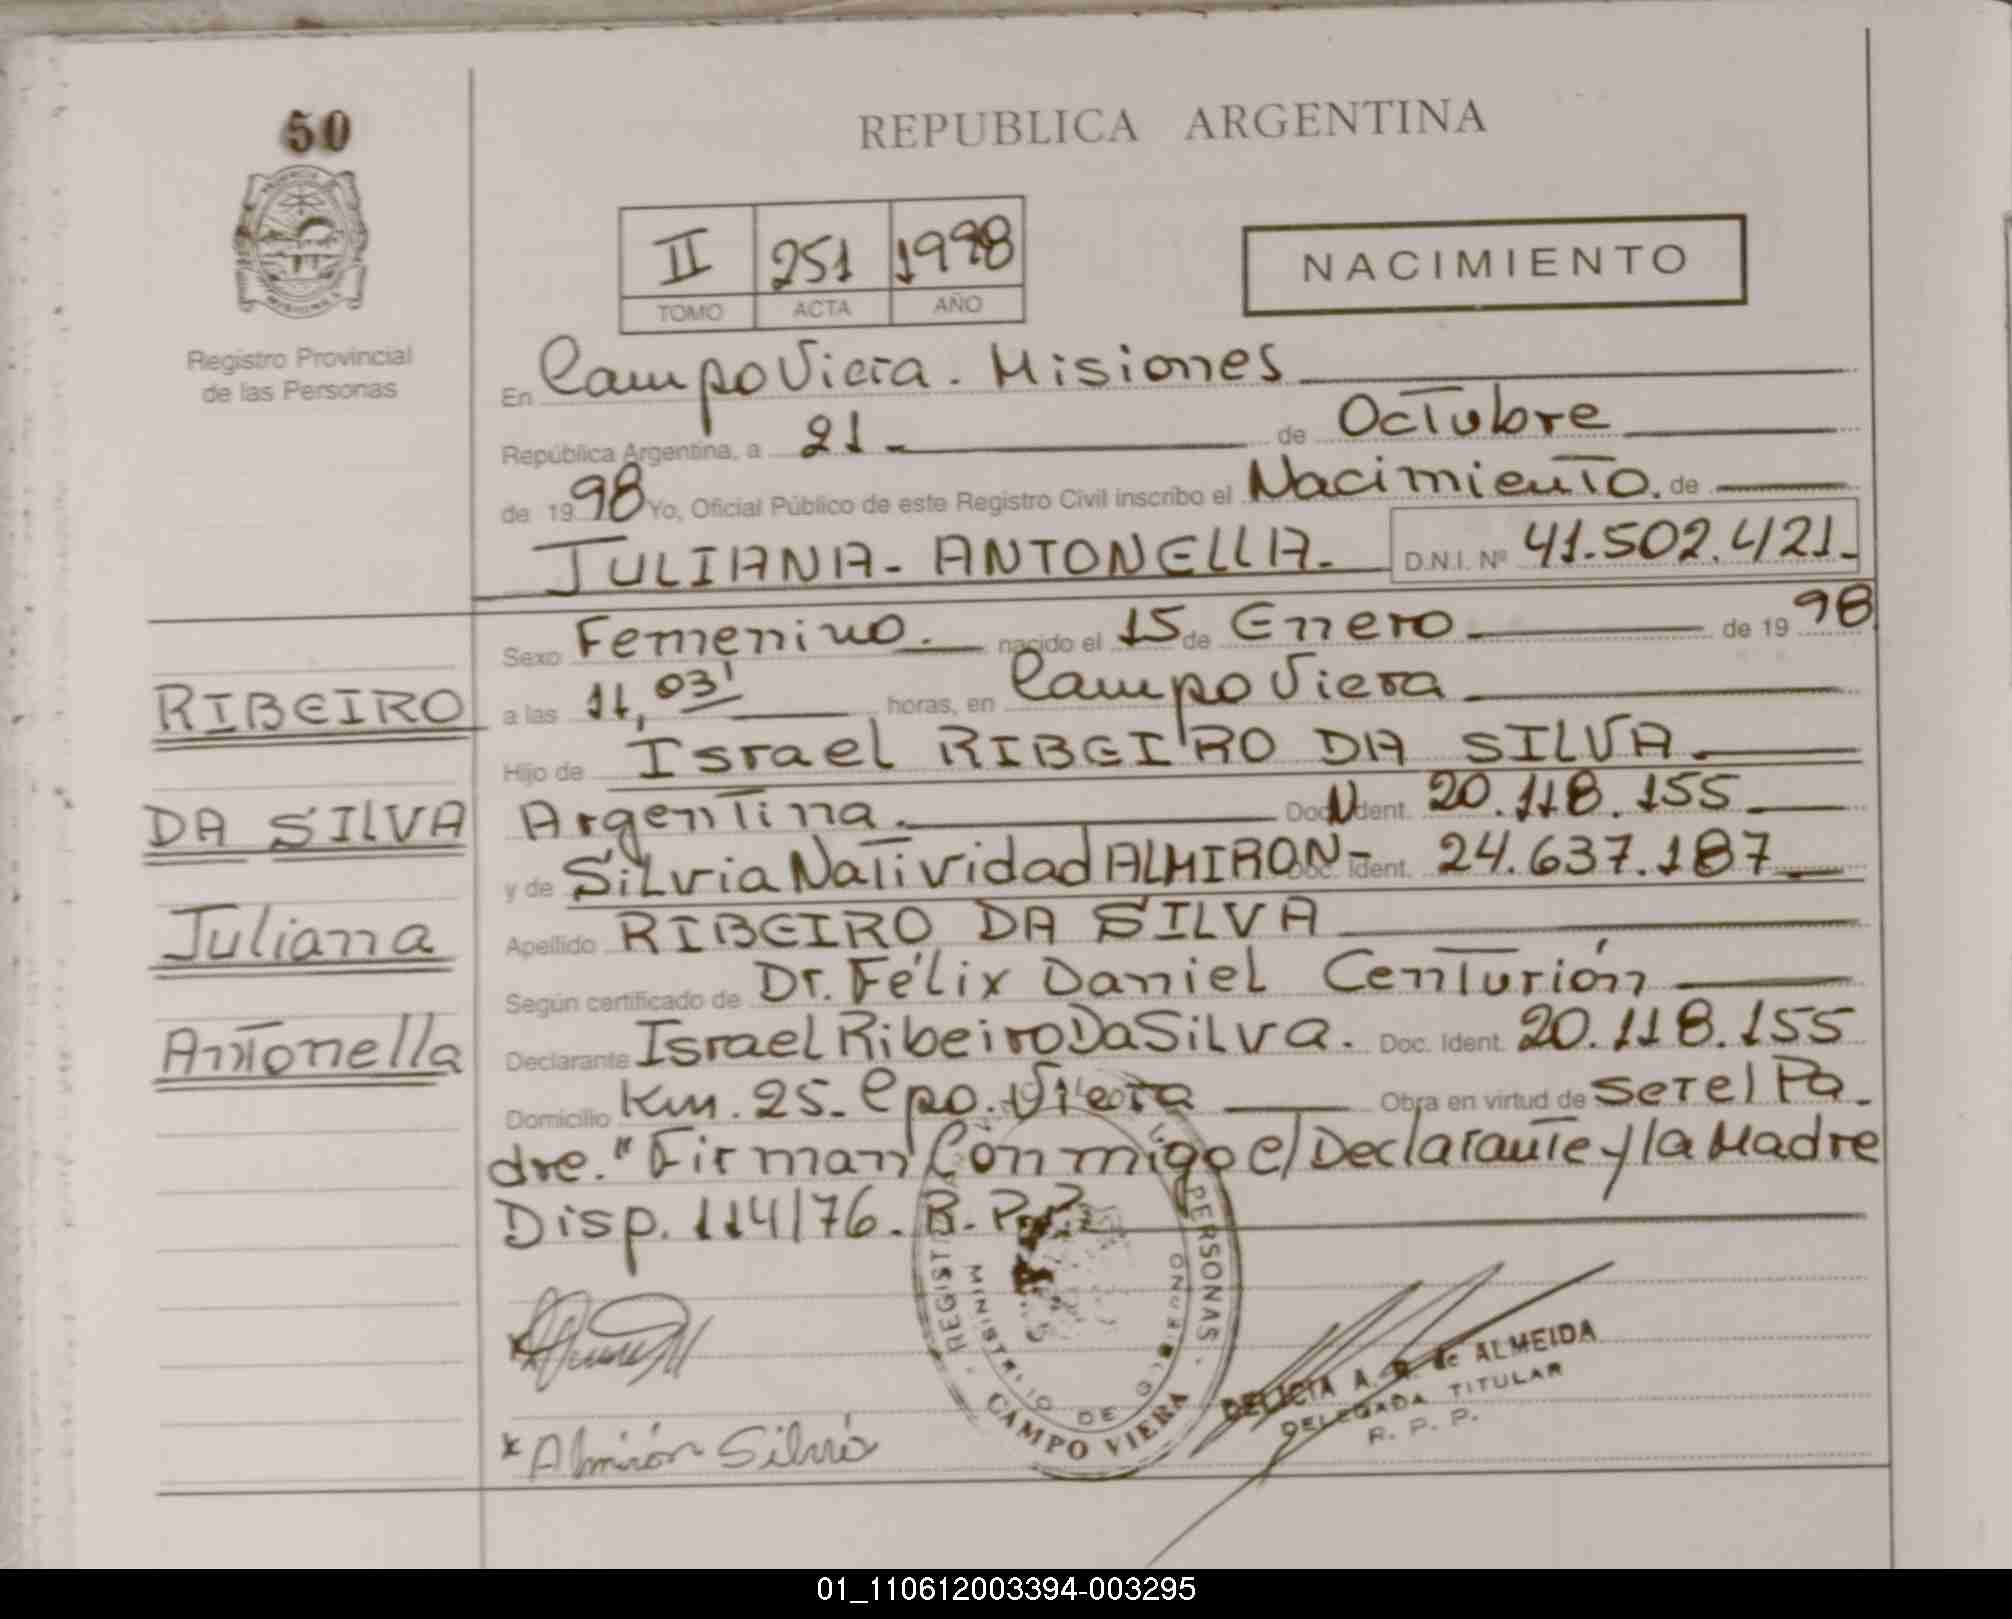 50
REPUBLICA ARGENTINA
II 251 1998
TOMO ACTA AÑO
NACIMIENTO
Registro Provincial
de las Personas
En Campo Viera. Misiones
República Argentina, a 21 de Octubre
de 1998 Yo, Oficial Público de este Registro Civil inscribo el Nacimiento. de
JULIANA- ANTONELLA. D.N.I. Nº 41.502.421.
Sexo Femenino. nacido el 15 de Enero de 19 98
a las 11,03' horas, en Campo Viera
Hijo de Israel RIBEIRO DA SILVA
Argentina. Doc. Ident. 20.118.155
y de Silvia Natividad ALMIRON- Doc. Ident. 24.637.187
Apellido RIBEIRO DA SILVA
Según certificado de Dr. Félix Daniel Centurión
Declarante Israel Ribeiro Da Silva. Doc. Ident. 20.118.155
Domicilio Km. 25. Cpo. Viera Obra en virtud de ser el Pa-
dre. "Firman Conmigo el Declarante y la Madre
Disp. 114/76. R. P. P.
RIBEIRO
DA SILVA
Juliana
Antonella
PERSONAS
MINISTERIO DE GOBIERNO
CAMPO VIERA
DELICIA A. R. de ALMEIDA
DELEGADA TITULAR
R. P. P.
x Almirón Silvia
01_110612003394-003295